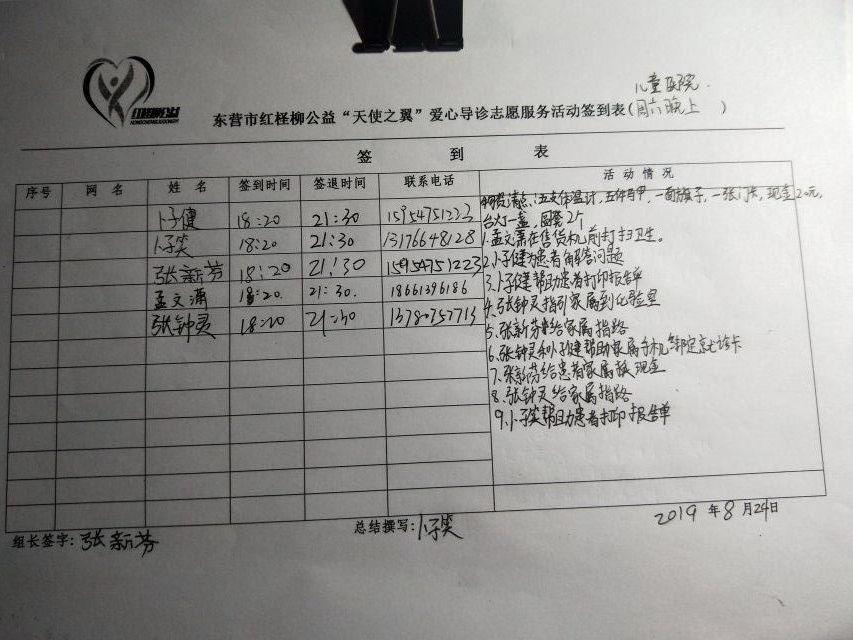 红柽柳公益
HONGCHENGLIUGONGYI
儿童医院
东营市红柽柳公益“天使之翼”爱心导诊志愿服务活动签到表(周六晚上)
签 到 表
序号 网 名 姓 名 签到时间 签退时间 联系电话 活 动 情 况
物资清点:五支体温计,五件马甲,一面旗子,一张门卡,现金20元,
卜子健 18:20 21:30 15954751223 台灯一盏,圆凳2个
卜子笑 18:20 21:30 13176648128 1.孟文潇在售货机前打扫卫生。
张新芬 18:20 21:30 15954751223 2.卜子健为患者解答问题
孟文潇 18:20. 21:30. 18661396186 3.卜子健帮助患者打印报告单
张钟灵 18:20 21:30 13780757713 4.张钟灵指引家属到化验室
5.张新芬给家属指路
6.张钟灵和卜子健帮助家属手机绑定就诊卡
7.张新芬给患者家属换现金
8.张钟灵给家属指路
9.卜子笑帮助患者打印报告单
2019 年 8 月 24 日
组长签字:张新芬 总结撰写:卜子笑